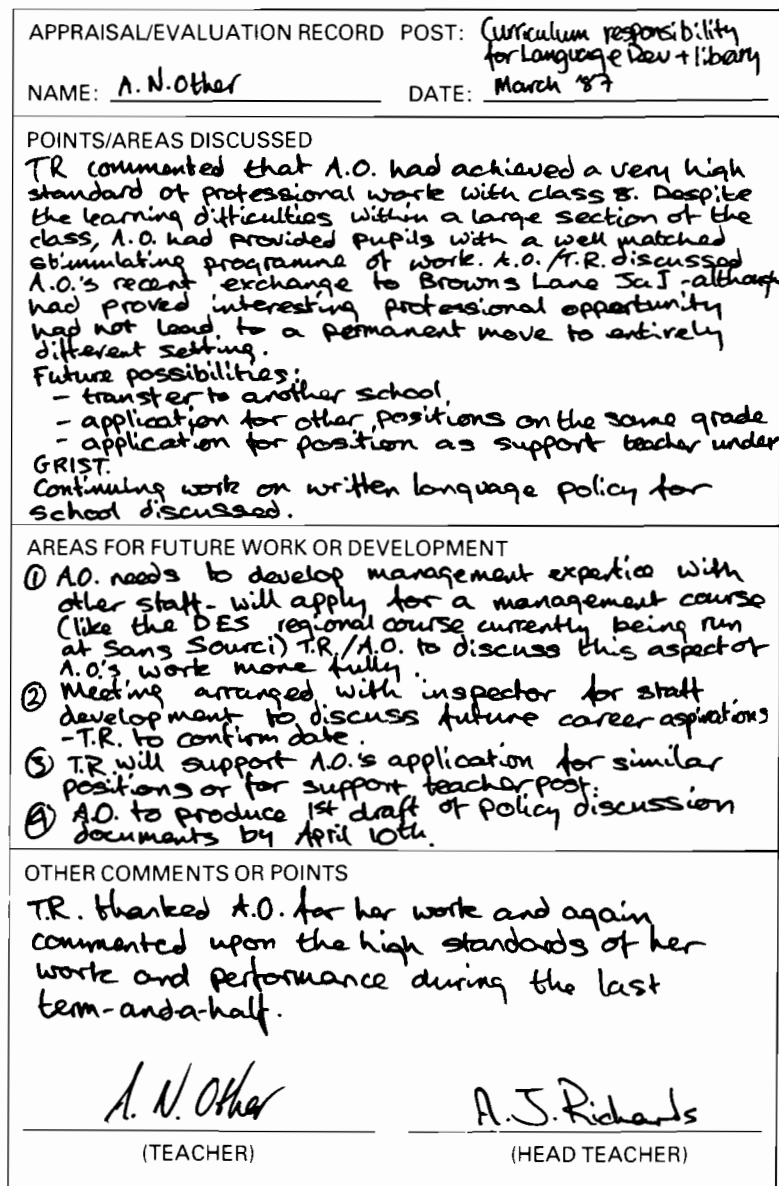 APPRAISAL/EVALUATION RECORD POST: Curriculum responsibility
for Language Dev + library
NAME: A. N. Other DATE: March '87
POINTS/AREAS DISCUSSED
TR commented that A.O. had achieved a very high
standard of professional work with class 8. Despite
the learning difficulties within a large section of the
class, A.O. had provided pupils with a well matched
stimmulating programme of work. A.O./T.R. discussed
A.O.'s recent exchange to Browns Lane J&I - although
had proved interesting professional opportunity
had not lead to a permanent move to entirely
different setting.
Future possibilities:
- transfer to another school,
- application for other positions on the same grade
- application for position as support teacher under
GRIST.
Continuing work on written language policy for
school discussed.
AREAS FOR FUTURE WORK OR DEVELOPMENT
① A.O. needs to develop management expertice with
other staff - will apply for a management course
(like the DES regional course currently being run
at Sans Sourci) T.R./A.O. to discuss this aspect of
A.O.'s work more fully.
② Meeting arranged with inspector for staff
development to discuss future career aspirations
- T.R. to confirm date.
③ T.R will support A.O.'s application for similar
positions or for support teacher post.
④ A.O. to produce 1st draft of policy discussion
documents by April 10th.
OTHER COMMENTS OR POINTS
T.R. thanked A.O. for her work and again
commented upon the high standards of her
work and performance during the last
term-and-a-half.
A. N. Other A. J. Richards
(TEACHER) (HEAD TEACHER)